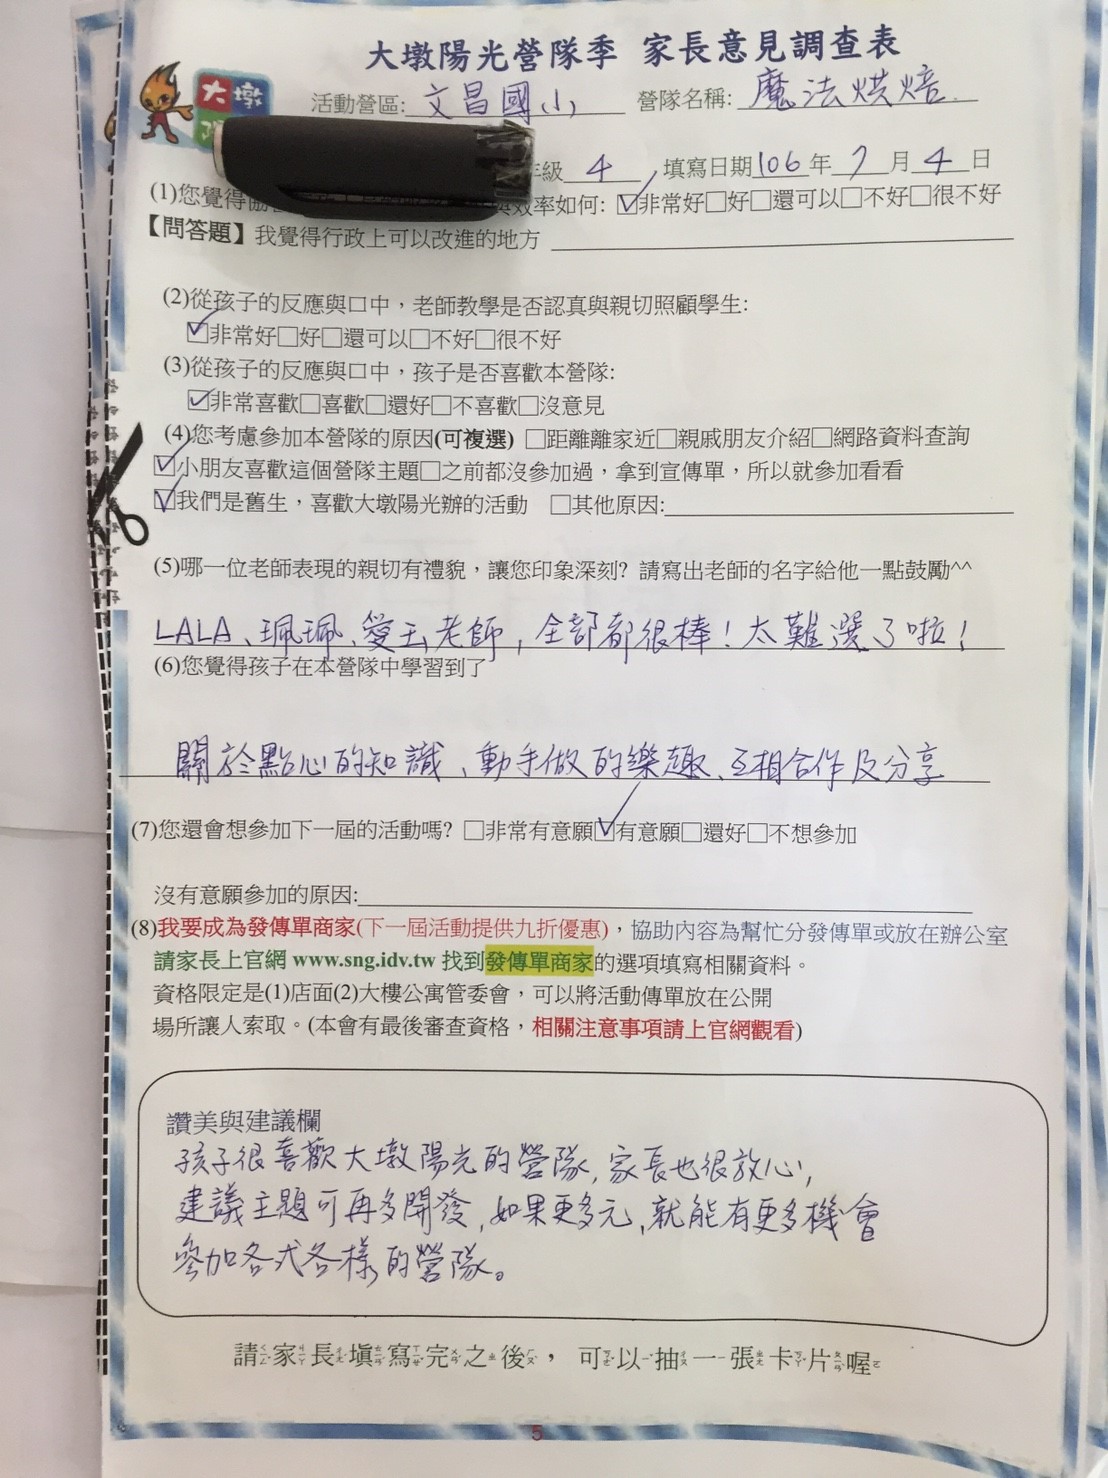 大墩陽光營隊季 家長意見調查表
大墩
活動營區: 文昌國小 營隊名稱: 魔法烘焙
級 4 , 填寫日期106年 7 月 4 日
(1)您覺得 效率如何: ☑非常好□好□還可以□不好□很不好
【問答題】我覺得行政上可以改進的地方
(2)從孩子的反應與口中，老師教學是否認真與親切照顧學生:
☑非常好□好□還可以□不好□很不好
(3)從孩子的反應與口中，孩子是否喜歡本營隊:
☑非常喜歡□喜歡□還好□不喜歡□沒意見
(4)您考慮參加本營隊的原因(可複選) □距離離家近□親戚朋友介紹□網路資料查詢
☑小朋友喜歡這個營隊主題□之前都沒參加過，拿到宣傳單，所以就參加看看
☑我們是舊生，喜歡大墩陽光辦的活動 □其他原因:
(5)哪一位老師表現的親切有禮貌，讓您印象深刻? 請寫出老師的名字給他一點鼓勵^^
LALA、珮珮、愛玉老師，全部都很棒！太難選了啦！
(6)您覺得孩子在本營隊中學習到了
關於點心的知識、動手做的樂趣、互相合作及分享
(7)您還會想參加下一屆的活動嗎? □非常有意願☑有意願□還好□不想參加
沒有意願參加的原因:
(8)我要成為發傳單商家(下一屆活動提供九折優惠)，協助內容為幫忙分發傳單或放在辦公室
請家長上官網 www.sng.idv.tw 找到發傳單商家的選項填寫相關資料。
資格限定是(1)店面(2)大樓公寓管委會，可以將活動傳單放在公開
場所讓人索取。(本會有最後審查資格，相關注意事項請上官網觀看)
讚美與建議欄
孩子很喜歡大墩陽光的營隊，家長也很放心，
建議主題可再多開發，如果更多元，就能有更多機會
參加各式各樣的營隊。
請家長填寫完之後，可以抽一張卡片喔
5